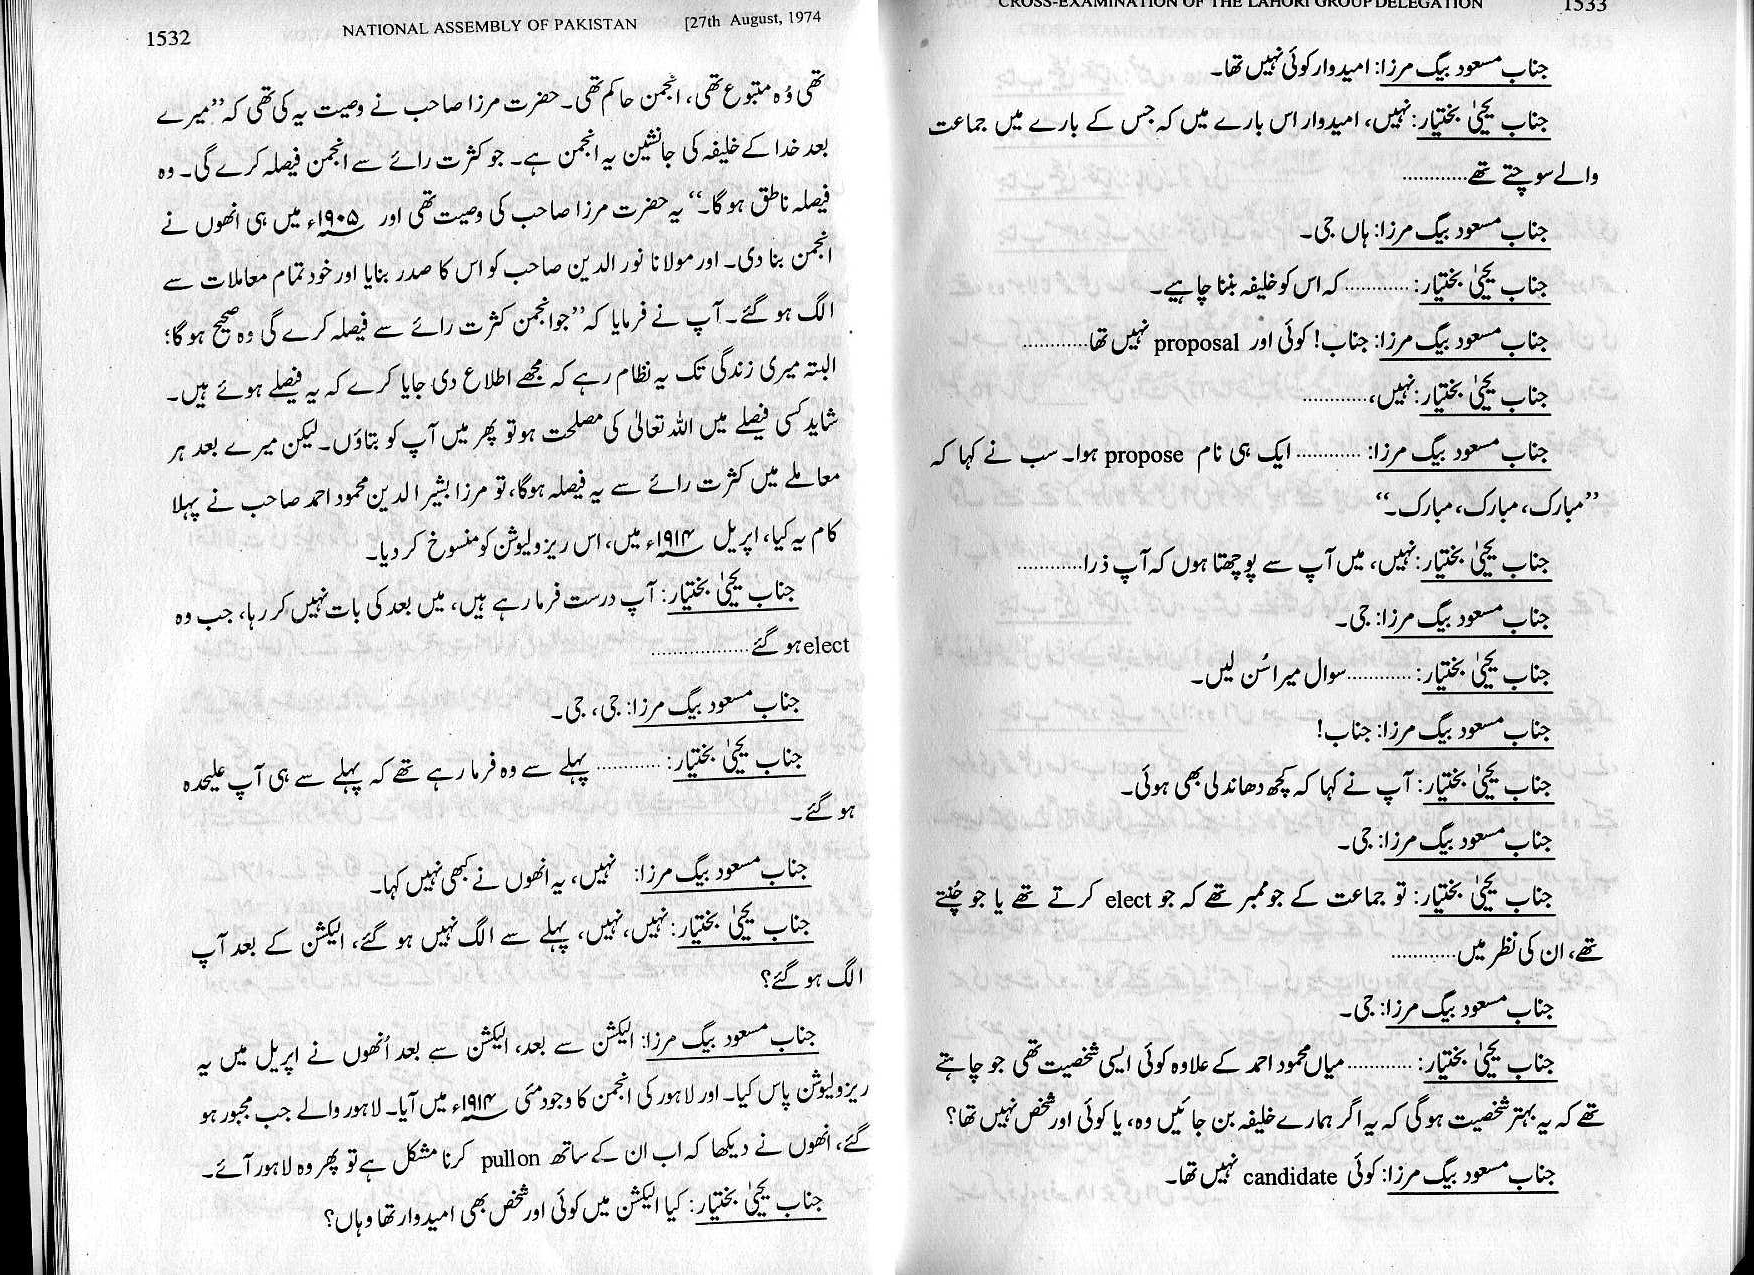 1532
NATIONAL ASSEMBLY OF PAKISTAN
[27th August, 1974
تھی وُہ متبوع تھی، انجمن حاکم تھی۔ حضرت مرزا صاحب نے وصیت یہ کی تھی کہ ’’میرے
بعد خدا کے خلیفہ کی جانشین یہ انجمن ہے۔ جو کثرت رائے سے انجمن فیصلہ کرے گی۔ وہ
فیصلہ ناطق ہو گا۔‘‘ یہ حضرت مرزا صاحب کی وصیت تھی اور ۱۹۰۵ء میں ہی انھوں نے
انجمن بنا دی۔ اور مولانا نور الدین صاحب کو اس کا صدر بنایا اور خود تمام معاملات سے
الگ ہو گئے۔ آپ نے فرمایا کہ ’’جو انجمن کثرت رائے سے فیصلہ کرے گی وہ صحیح ہو گا؛
البتہ میری زندگی تک یہ نظام رہے کہ مجھے اطلاع دی جایا کرے کہ یہ فیصلے ہوئے ہیں۔
شاید کسی فیصلے میں اللہ تعالیٰ کی مصلحت ہو تو پھر میں آپ کو بتاؤں۔ لیکن میرے بعد ہر
معاملے میں کثرت رائے سے یہ فیصلہ ہوگا، تو مرزا بشیر الدین محمود احمد صاحب نے پہلا
کام یہ کیا، اپریل ۱۹۱۴ء میں، اس ریزولیوشن کو منسوخ کر دیا۔
جناب یحییٰ بختیار: آپ درست فرما رہے ہیں، میں بعد کی بات نہیں کر رہا، جب وہ
elect ہو گئے..................
جناب مسعود بیگ مرزا: جی، جی۔
جناب یحییٰ بختیار: ............ پہلے سے وہ فرما رہے تھے کہ پہلے سے ہی آپ علیحدہ
ہو گئے۔
جناب مسعود بیگ مرزا: نہیں، یہ انھوں نے کبھی نہیں کہا۔
جناب یحییٰ بختیار: نہیں، نہیں، پہلے سے الگ نہیں ہو گئے، الیکشن کے بعد آپ
الگ ہو گئے؟
جناب مسعود بیگ مرزا: الیکشن سے بعد، الیکشن سے بعد اُنھوں نے اپریل میں یہ
ریزولیوشن پاس کیا۔ اور لاہور کی انجمن کا وجود مئی ۱۹۱۴ء میں آیا۔ لاہور والے جب مجبور ہو
گئے، انھوں نے دیکھا کہ اب ان کے ساتھ pullon کرنا مشکل ہے تو پھر وہ لاہور آئے۔
جناب یحییٰ بختیار: کیا الیکشن میں کوئی اور شخص بھی امیدوار تھا وہاں؟
CROSS-EXAMINATION OF THE LAHORI GROUP DELEGATION
1533
جناب مسعود بیگ مرزا: امیدوار کوئی نہیں تھا۔
جناب یحییٰ بختیار: نہیں، امیدوار اس بارے میں کہ جس کے بارے میں جماعت
والے سوچتے تھے............
جناب مسعود بیگ مرزا: ہاں جی۔
جناب یحییٰ بختیار: ............ کہ اس کو خلیفہ بننا چاہیے۔
جناب مسعود بیگ مرزا: جناب! کوئی اور proposal نہیں تھا............
جناب یحییٰ بختیار: نہیں،............
جناب مسعود بیگ مرزا: ............ ایک ہی نام propose ہوا۔ سب نے کہا کہ
’’مبارک، مبارک، مبارک۔‘‘
جناب یحییٰ بختیار: نہیں، میں آپ سے پوچھتا ہوں کہ آپ ذرا............
جناب مسعود بیگ مرزا: جی۔
جناب یحییٰ بختیار: ............ سوال میرا سُن لیں۔
جناب مسعود بیگ مرزا: جناب!
جناب یحییٰ بختیار: آپ نے کہا کہ کچھ دھاندلی بھی ہوئی۔
جناب مسعود بیگ مرزا: جی۔
جناب یحییٰ بختیار: تو جماعت کے جو ممبر تھے کہ جو elect کرتے تھے یا جو چُنتے
تھے، ان کی نظر میں............
جناب مسعود بیگ مرزا: جی۔
جناب یحییٰ بختیار: ............ میاں محمود احمد کے علاوہ کوئی ایسی شخصیت تھی جو چاہتے
تھے کہ یہ بہتر شخصیت ہو گی کہ یہ اگر ہمارے خلیفہ بن جائیں وہ، یا کوئی اور شخص نہیں تھا؟
جناب مسعود بیگ مرزا: کوئی candidate نہیں تھا۔